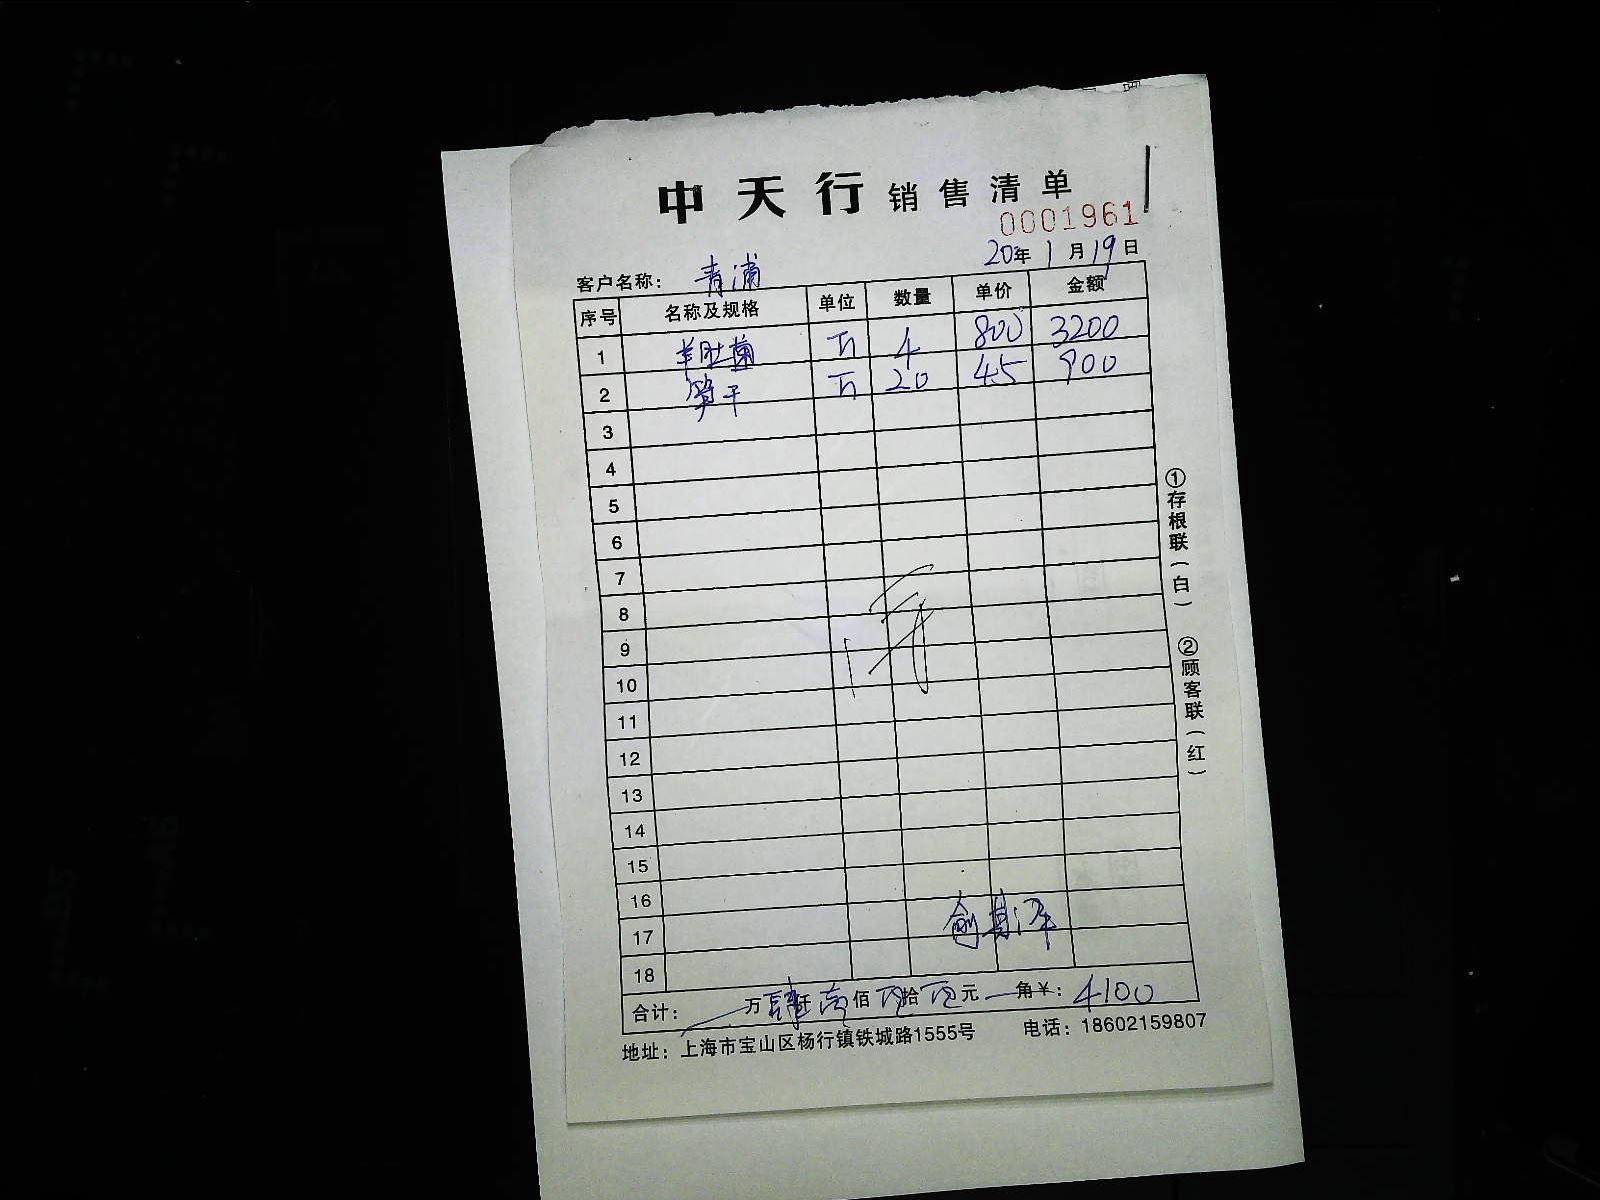 中天行销售清单
0001961
20年1月19日
客户名称：青浦
序号 名称及规格 单位 数量 单价 金额
1 羊肚菌 斤 4 800 3200
2 笋干 斤 20 45 900
3
4
5
6
7
8
9
10
11
12
13
14
15
16
17
18
合计： 万肆仟壹佰零拾零元 角￥：4100
地址：上海市宝山区杨行镇铁城路1555号 电话：18602159807
①存根联（白） ②顾客联（红）